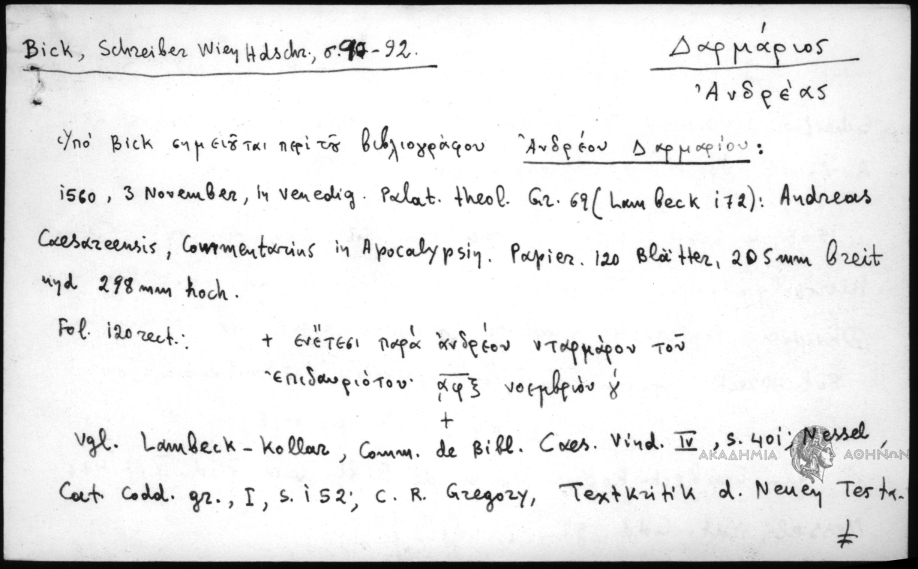 Bick, Schreiber Wien Hdschr., σ. 90-92.
Δαρμάριος
Ἀνδρέας
Ὑπό Bick σημειοῦται περί τοῦ βιβλιογράφου Ἀνδρέου Δαρμαρίου:
1560, 3 November, in Venedig. Palat. theol. Gr. 69 (Lambeck 172): Andreas
Caesareensis, Commentarius in Apocalypsin. Papier. 120 Blätter, 205mm breit
und 298mm hoch.
Fol. 120 rect.: + ενἔτεσι παρά ἀνδρέου νταρμάρου τοῦ
ἐπιδαυριότου· ͵αφξ νοεμβρίου γ́
+
Vgl. Lambeck-Kollar, Comm. de Bibl. Caes. Vind. IV, S. 401; Nessel,
Cat Codd. gr., I, S. 152; C. R. Gregory, Textkritik d. Neuen Testa-
ΑΚΑΔΗΜΙΑ ΑΘΗΝΩΝ